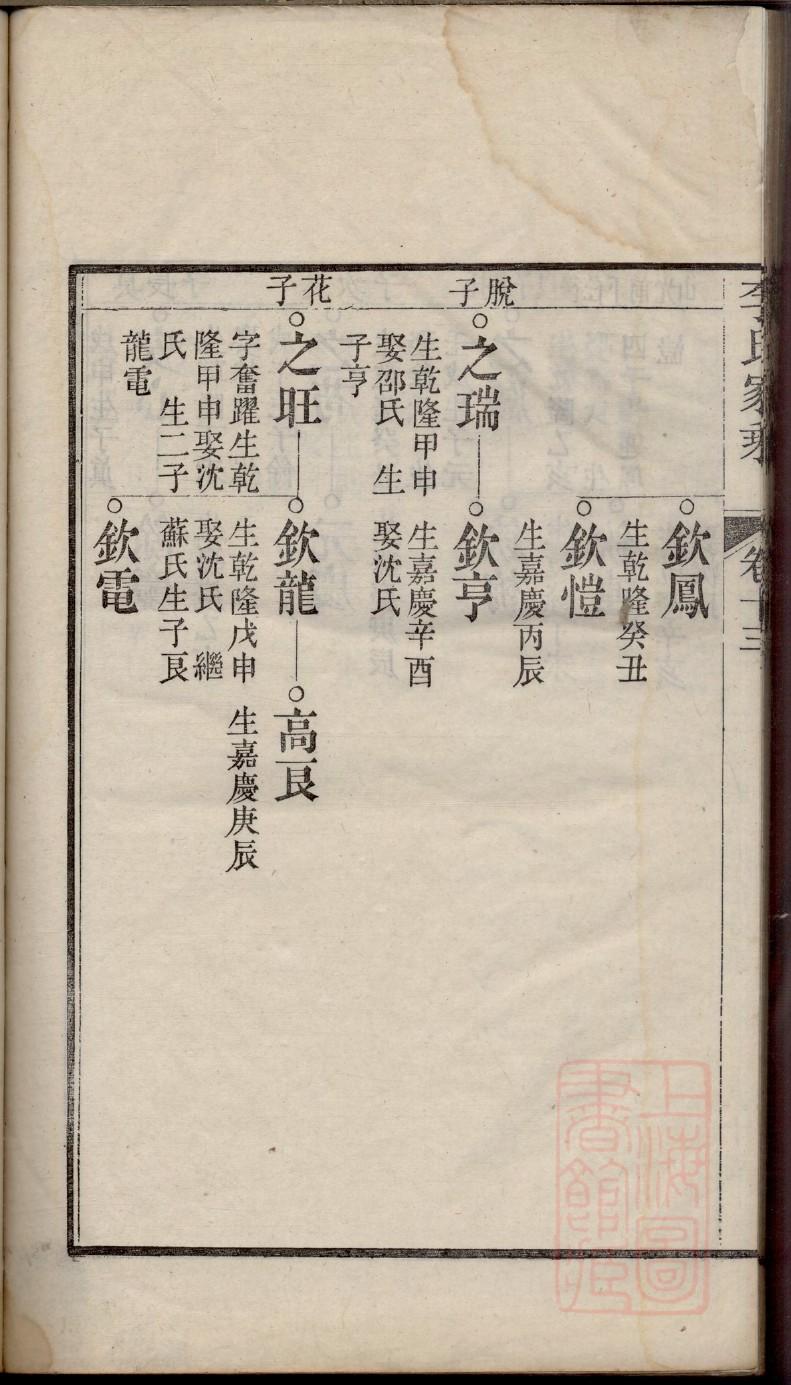 李氏家乘
卷十三
欽鳳
生乾隆癸丑
欽愷
生嘉慶丙辰
脫子
之瑞
生乾隆甲申
娶邵氏 生
子亨
欽亨
生嘉慶辛酉
娶沈氏
花子
之旺
字奮躍生乾
隆甲申娶沈
氏 生二子
龍電
欽龍
生乾隆戊申
娶沈氏 繼
蘇氏生子艮
高艮
生嘉慶庚辰
欽電
上海圖
書館藏